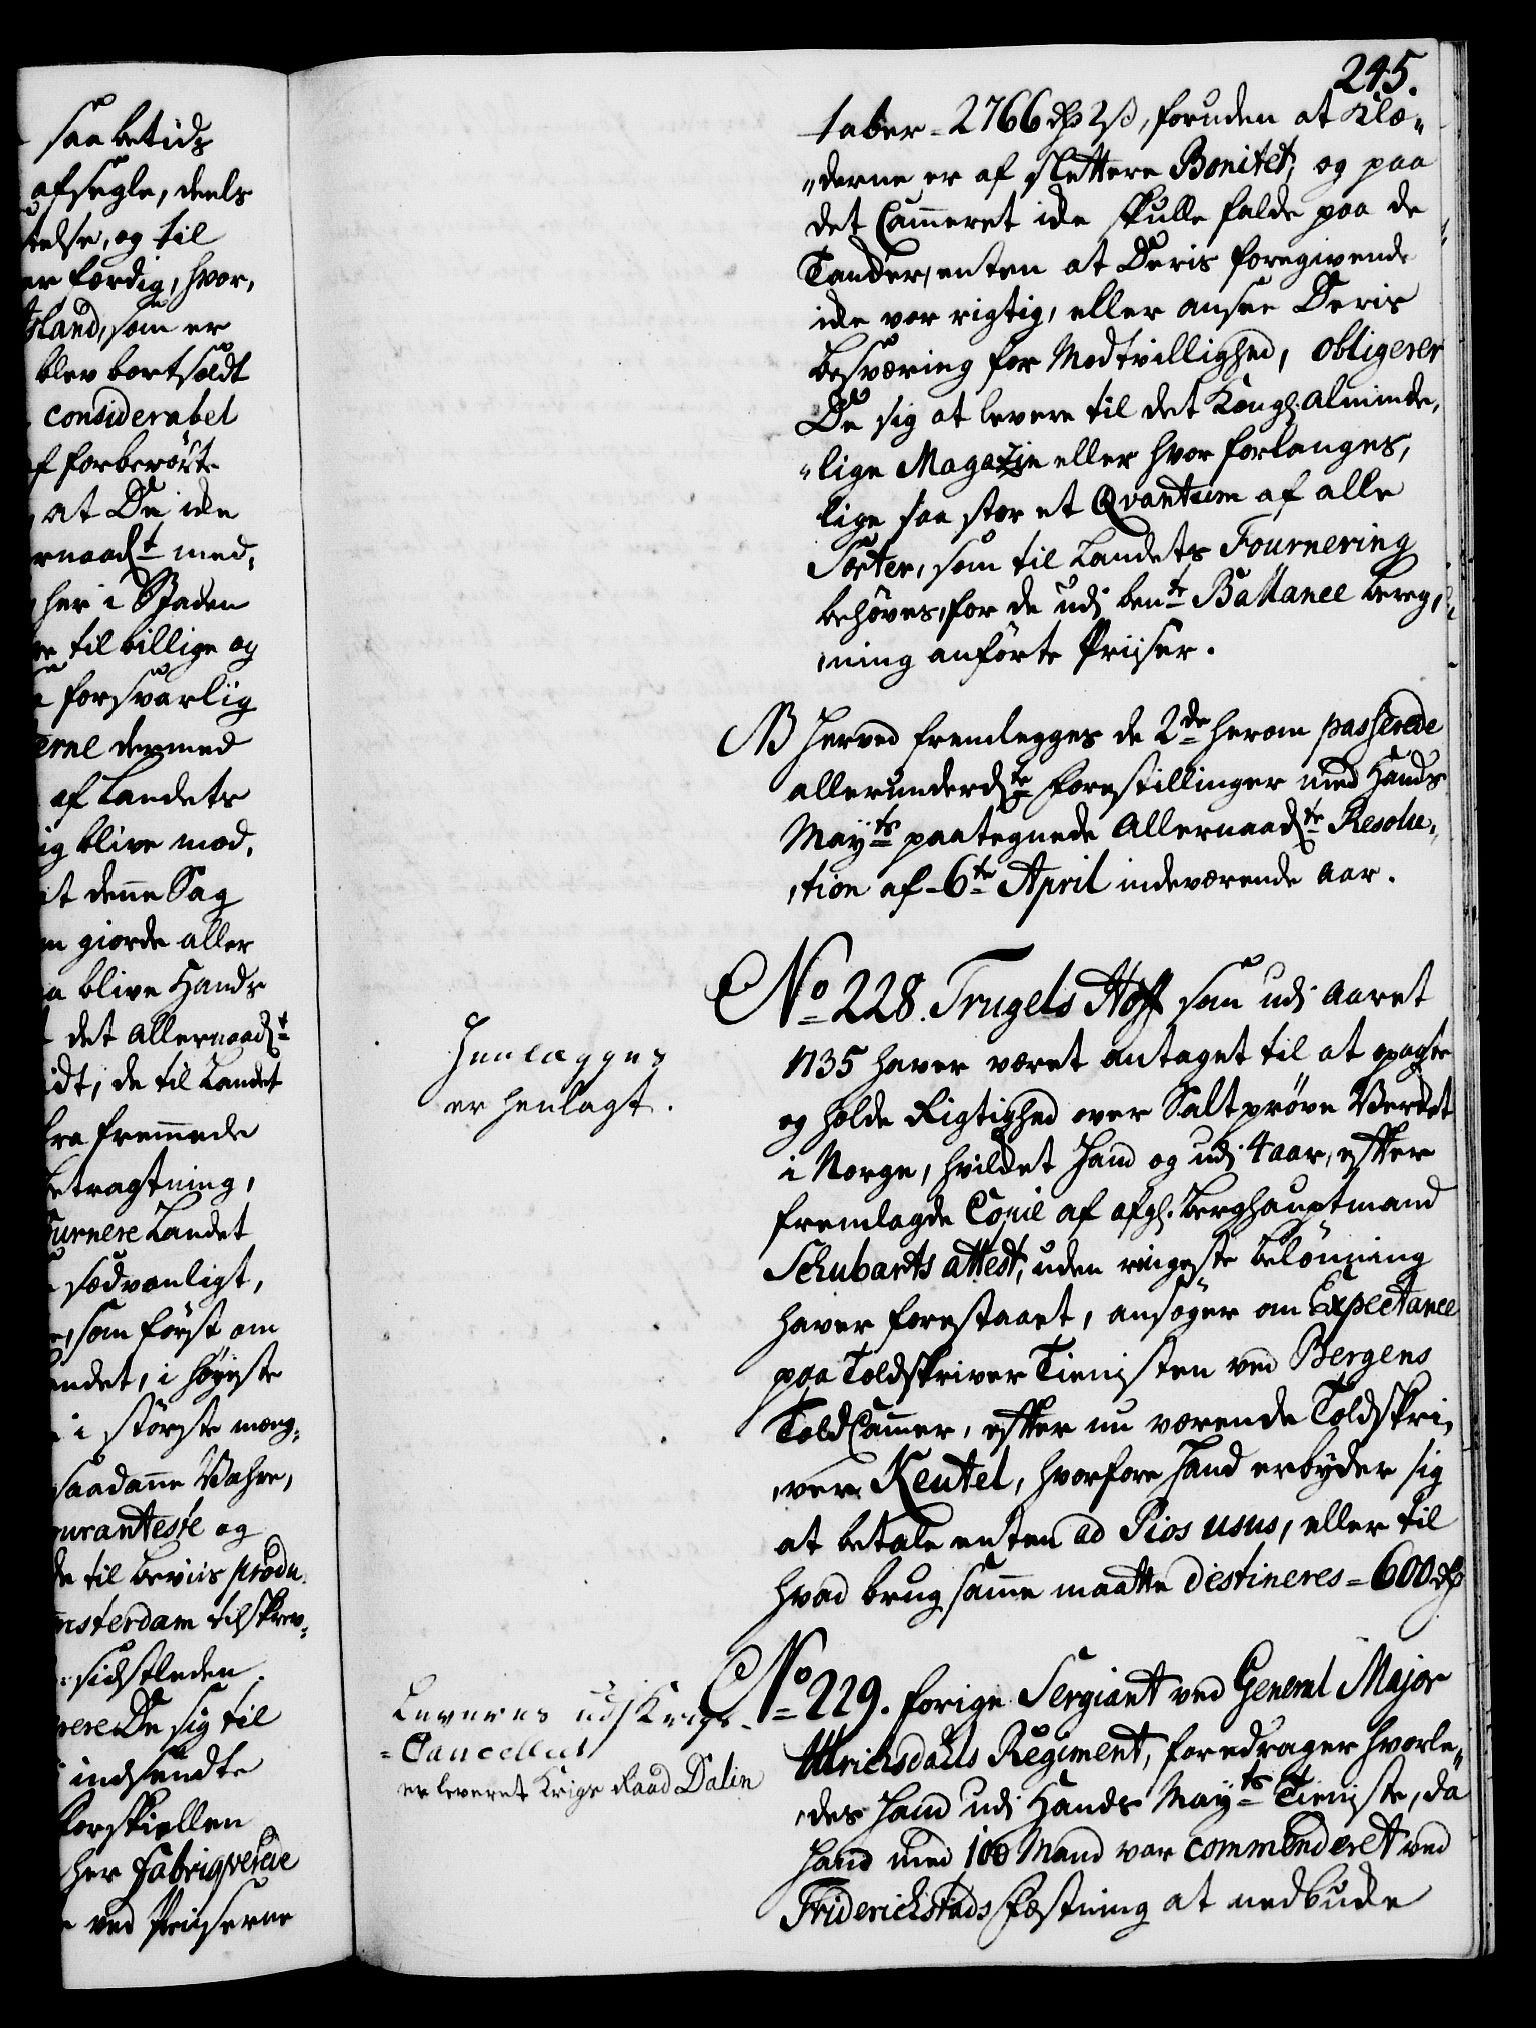 saa betids
afsegle, deels
telse, og til
er færdig, hvor,
Island, som er
blev bortsoldt
considerabel
af forberørte
at De icke
med,
her i Staden
til billige og
forsvarlig
erne dermed
af Landets
ig blive mod,
at denne Sag
giorde aller
a blive Hands
det allernaad.t
idt, de til Landet
fra fremmede
betragtning,
furnere Landet
sædvanligt,
som først om
andet, i høyeste
i største mæng,
saadanne Wahre,
curanteste og
de til beviis produ,
Amsterdam tilskrev,
sidstleden.
De sig til
indsendte
forskiellen
her Fabrigverede
ved Priiserne
245.
taber = 2766 rdr 2 ß, foruden at Klæ,,
,,derne er af slettere Bonitet, og paa
det Cammeret icke skulle falde paa de
Tancker, enten at Deris foregivende
icke var rigtig, eller ansee Deris
besværing for Modtvillighed, obligerer
De sig at levere til det Kongl. alminde,
,,lige Magazin eller hvor forlanges,
lige saa stor et Qvantum af alle
Sorter, som til Landets Fournering
behøves, for de udj ben.te Ballance bereg,
,ning anførte Priiser.
NB Herved fremlegges de 2.de herom passerede
allerunderd.te forestillinger med Hands
May.ts paategnede Allernaad.te Resolu,
,tion af 6.te April indeværende aar.
No 228. Trugels Hoff som udj aaret
1735 haver været antaget til at opagte
og holde Rigtighed over Saltprøve Verket
i Norge, hvilcket Hand og udj 4 aar, efter
fremlagde Copie af afg. Berghauptmand
Schubarts attest, uden ringeste belønning
haver forestaaet, ansøger om Expectance
paa Toldskriver Tienisten ved Bergens
ToldCammer, efter nu værende Toldskri,
,ver Keutel, hvorfore Hand erbyder sig
at betale enten ad Pios usus, eller til
hvad brug samme maatte destineres = 600 rdr
Henlægges
er henlagt.
No 229. forige Sergiant ved General Major
Ulrichsdalls Regiment, foredrager hvorle,,
,des Hand udj Hands May.ts Tieniste, da
Hand med 100 Mand var commenderet ved
Friderichstads Fæstning at nedbude
Leveres udj Krigs-
=Cancelliet
er leveret Krigs Raad Dalin